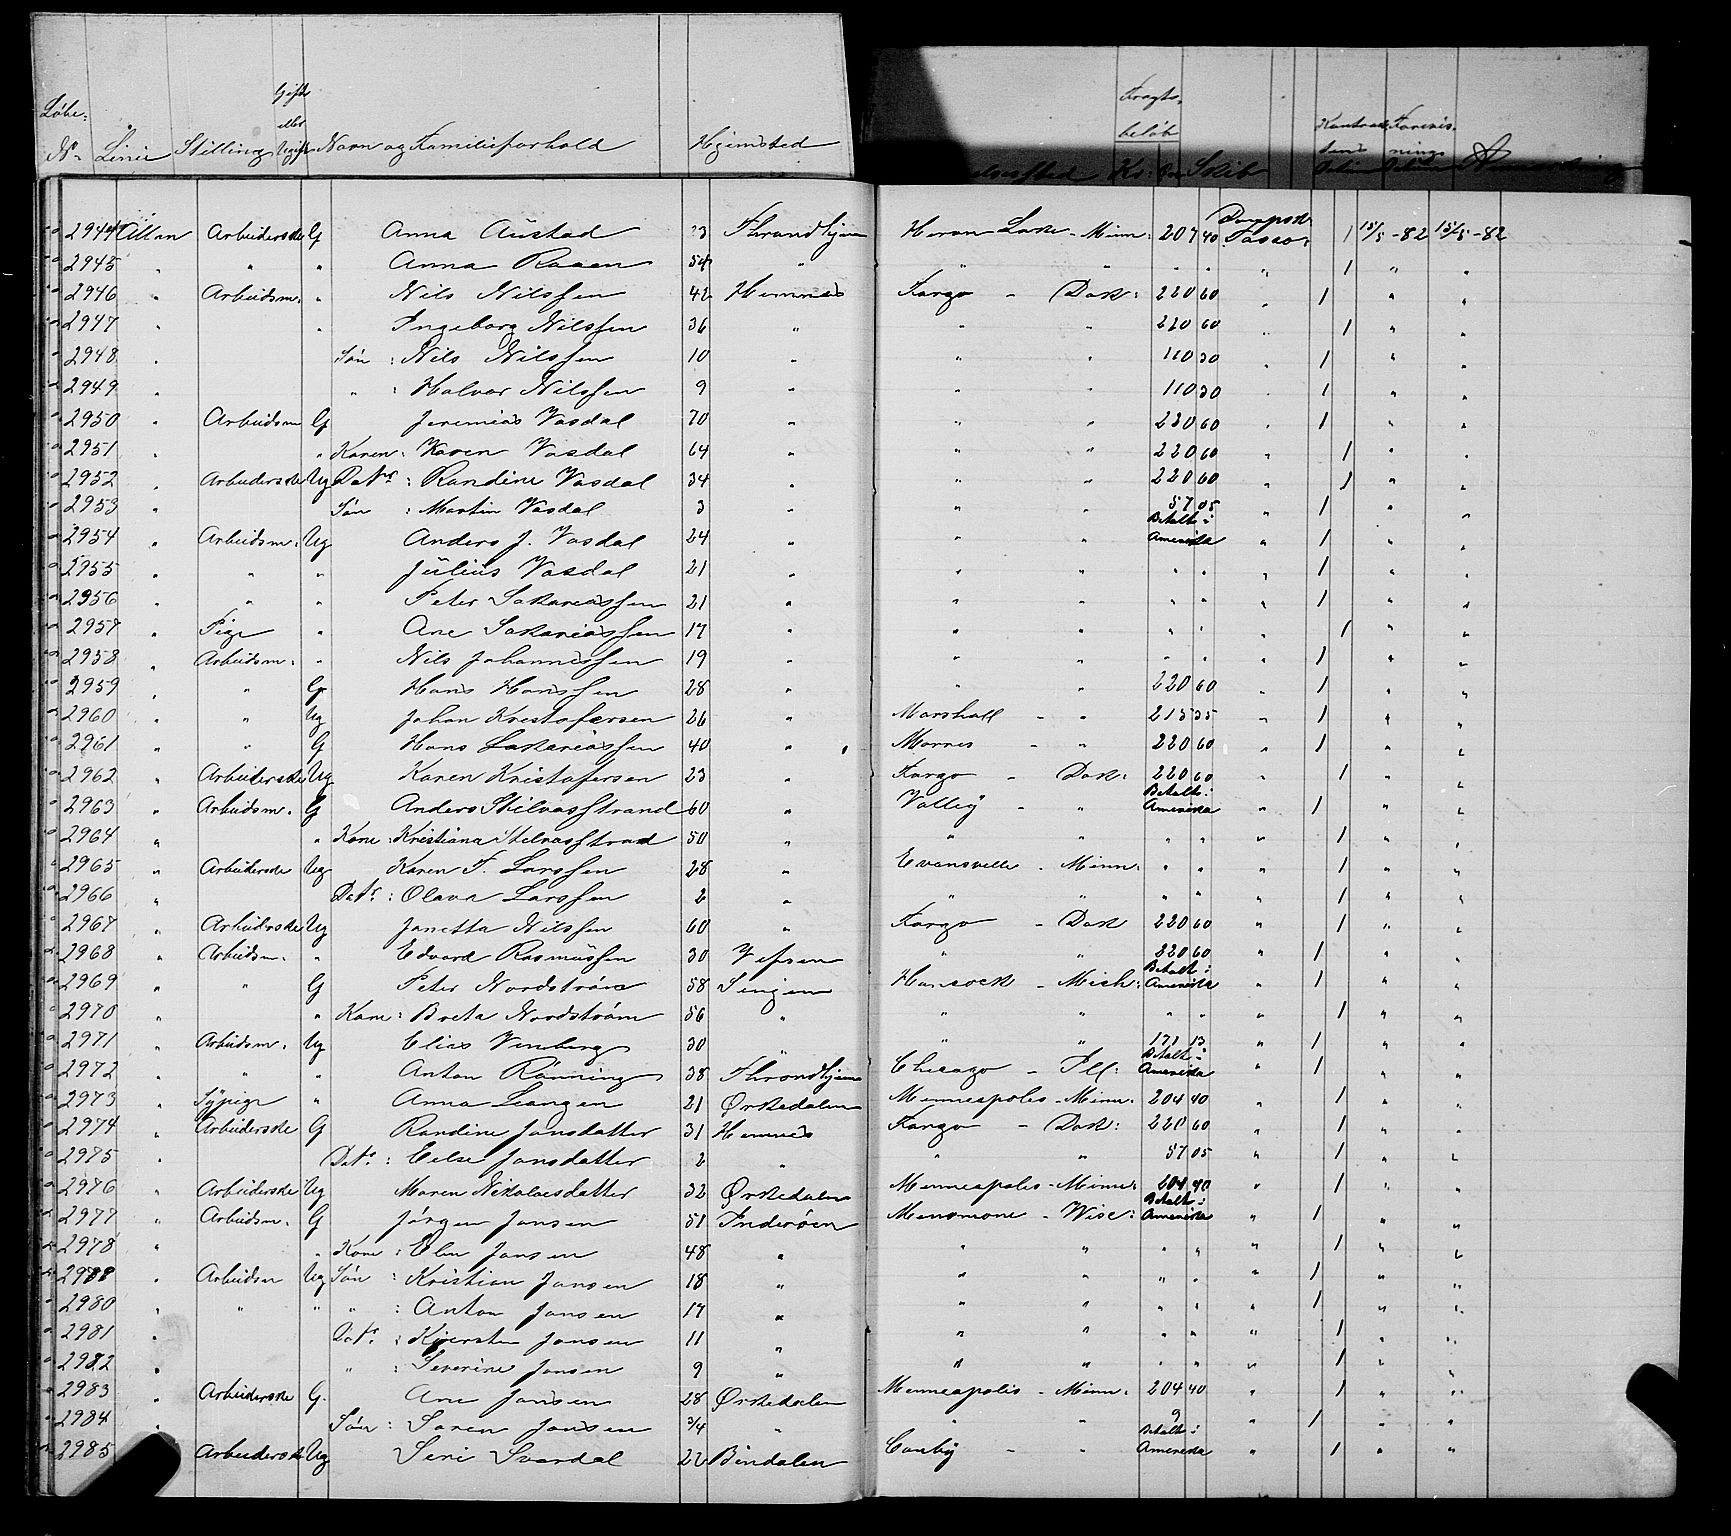 Løbe: No. Linie Stilling Gift eller Ugift Navn og Familieforhold Hjemsted Fragts beløb Kr: Øre Skib
2944 Allan Arbeiderske G Anna Austad 23 Throndhjem Heron Lake - Minn: 207 40 Dampsk. Tasso 1 15/5 - 82 15/5 - 82
2945 " " " Anna Raaen 54 " " " " " " 1 " "
2946 " Arbeidsm. " Nils Nilssen 42 Hemnes Fargo - Dak: 220 60 " 1 " "
2947 " " Ingeborg Nilssen 36 " " " 220 60 " 1 " "
2948 " Søn : Nils Nilssen 10 " " " 110 30 " 1 " "
2949 " " : Halvor Nilssen 9 " " " 110 30 " 1 " "
2950 " Arbeidsm G Jeremias Vasdal 70 " " " 220 60 " 1 " "
2951 " " Karen : Karen Vasdal 64 " " " 220 60 " 1 " "
2952 " Arbeiderske Ug Datr : Randine Vasdal 34 " " " 220 60 " 1 " "
2953 " Søn : Martin Vasdal 3 " " " 57 05 " 1 " "
2954 " Arbeidsm. Ug Anders J. Vasdal 24 " " " Betalt i Amerika " 1 " "
2955 " " " Julius Vasdal 21 " " " " " " 1 " "
2956 " " " Peter Sakariassen 21 " " " " " " 1 " "
2957 " Pige " Ane Sakariassen 17 " " " " " " 1 " "
2958 " Arbeidsm. " Nils Johannessen 19 " " " " " " 1 " "
2959 " " G Hans Hanssen 28 " " " 220 60 " 1 " "
2960 " " Ug Johan Kristofersen 26 " Marshall - " 215 35 " 1 " "
2961 " " G Hans Sakariassen 40 " Morris - " 220 60 " 1 " "
2962 " Arbeiderske Ug Karen Kristofersen 23 " Fargo - Dak: 220 60 " 1 " "
2963 " Arbeidsm. G Anders Stilvasstrand 60 " Valley - " Betalt i Amerika " 1 " "
2964 " " Kone : Kristiana Stilvasstrand 50 " " " " " " 1 " "
2965 " Arbeiderske Ug Karen F. Larssen 28 " Evansville - Minn: " " " 1 " "
2966 " Datr : Olava Larssen 2 " " " " " " 1 " "
2967 " Arbeiderske Ug Janetta Nilssen 60 " Fargo - Dak 220 60 " 1 " "
2968 " Arbeidsm. " Edvard Rasmussen 30 Vefsen " " 220 60 " 1 " "
2969 " " G Peter Nordstrøm 58 Senjen Hancock - Mich: Betalt i Amerika " 1 " "
2970 " " Kone : Breta Nordstrøm 56 " " " " " " 1 " "
2971 " Arbeidsm. Ug Elias Vinberg 30 " " " 171 13 " 1 " "
2972 " " " Anton Rønning 38 Throndhjem Chicago - Ill: Betalt i Amerika " 1 " "
2973 " Sypige " Anna Leangen 21 Ørkedalen Minneapolis - Minn: 204 40 " 1 " "
2974 " Arbeiderske G Randine Jonsdatter 31 Hemnes Fargo - Dak: 220 60 " 1 " "
2975 " Datr : Else Jonsdatter 2 " " " 57 05 " 1 " "
2976 " Arbeiderske Ug Maren Nikolaisdatter 32 Ørkedalen Minneapolis - Minn: 204 40 " 1 " "
2977 " Arbeidsm. G Jørgen Jansen 51 Inderøen Menomone - Wisc: Betalt i Amerika " 1 " "
2978 " " Kone : Elen Jansen 48 " " " " " " 1 " "
2988 " Arbeidsm Ug Søn : Kristian Jansen 18 " " " " " " 1 " "
2980 " " " " : Anton Jansen 17 " " " " " " 1 " "
2981 " Datr : Kjersten Jansen 11 " " " " " " 1 " "
2982 " " : Severine Jansen 9 " " " " " " 1 " "
2983 " Arbeiderske G. Ane Jansen 28 Ørkedalen Minneapolis - Minn: 204 40 " 1 " "
2984 " Søn : Soren Jansen 3/4 " " " 9 " 1 " "
2985 Arbeiderske Ug Seri Svardal 22 Bindalen Canby - " Betalt i Amerika " 1 " "